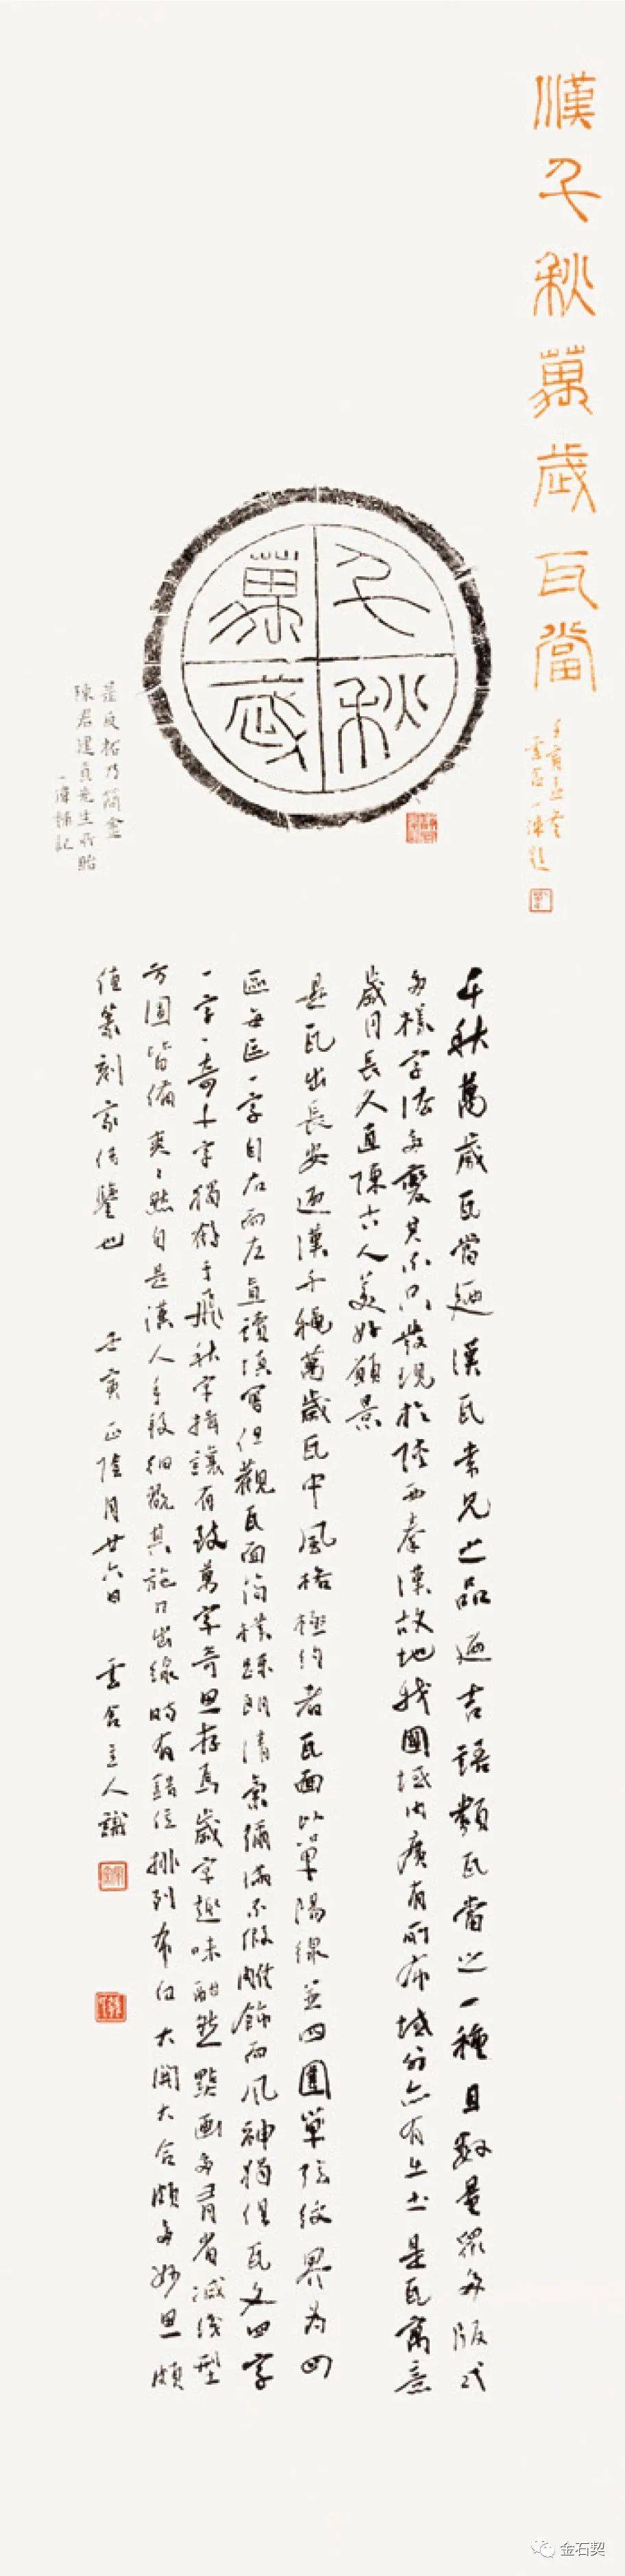 漢千秋萬歲瓦當
壬寅孟春
雲舍一瀟題
千秋
萬歲
千秋萬歲瓦當廼漢瓦常見之品迺吉語類瓦當之一種且數量眾多版式
多樣字法多變其不只發現於陝西秦漢故地我國域内廣有所布域外亦有出土是瓦寓意
歲月長久直陳古人美好願景
是瓦出長安迺漢千秋萬歲瓦中風格極約者瓦面以單陽線並四圍單弦紋界為四
區每區一字自右而左直讀填寫但觀瓦面簡樸疎朗清氣彌滿不假雕飾而風神獨俱瓦文四字
一字一奇千字獨舒于飛秋字揖讓有致萬字奇思存焉歲字趣味酣然點畫多有省減俊型
方圓皆備爽爽然自是漢人手段細觀其施刀出線時有錯位排列布白大開大合頗多妙思頗
值篆刻家借鑒也
壬寅正陰月廿六日
雲舍主人識
蓋反拓乃簡盦
陳君建貞先生所貽
補記
金石契